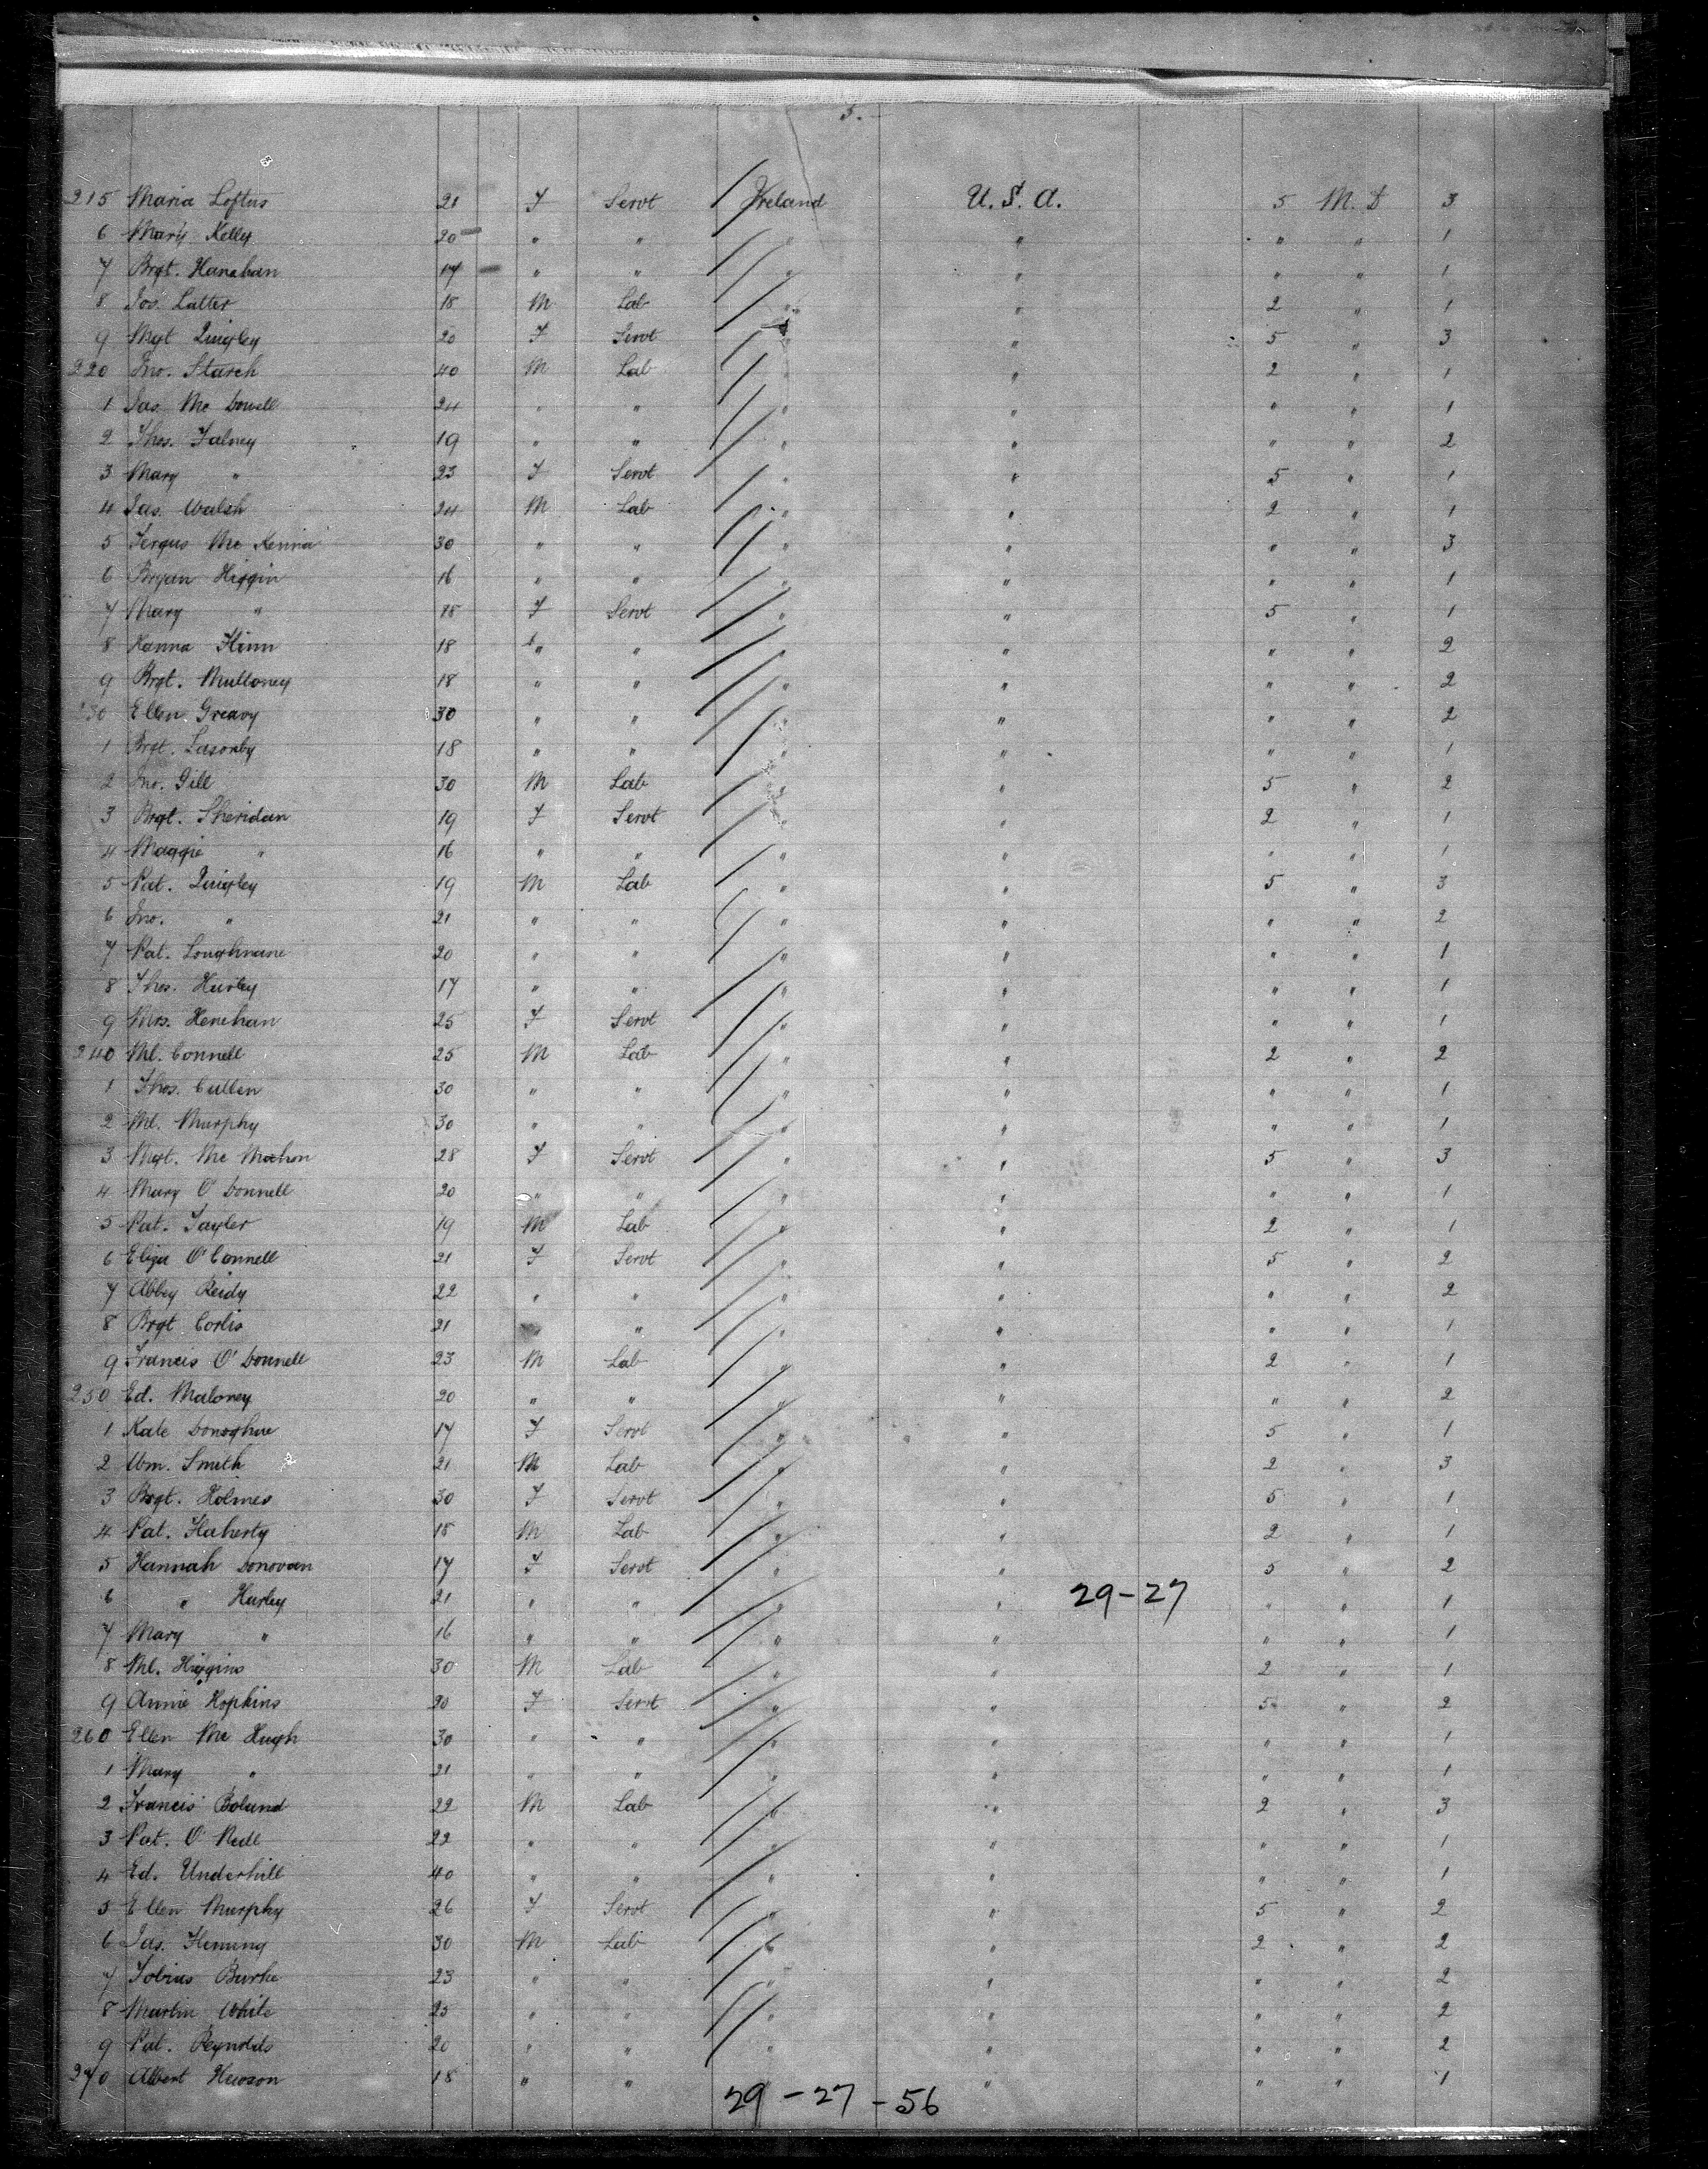 5.
215 Maria Loftus 21 F Servt Ireland U.S.A. 5 M.D 3
6 Mary Kelly 20 " " " " " " 1
7 Brgt. Hanahan 17 " " " " " " 1
8 Jos. Latter 18 M Lab " " 2 " 1
9 Mgt Quigley 20 F Servt " " 5 " 3
220 Jno. Starch 40 M Lab " " 2 " 1
1 Jas. Mc Dowell 24 " " " " " " 1
2 Thos. Falney 19 " " " " " " 2
3 Mary " 23 F Servt " " 5 " 1
4 Jas. Walsh 24 M Lab " " 2 " 1
5 Fergus Mc Kenna 30 " " " " " " 3
6 Bryan Higgin 16 " " " " " " 1
7 Mary " 18 F Servt " " 5 " 1
8 Hanna Flinn 18 " " " " " " 2
9 Brgt. Mulloney 18 " " " " " " 2
230 Ellen Greavy 30 " " " " " " 2
1 Brgt. Lasonby 18 " " " " " " 1
2 Jno. Gill 30 M Lab " " 5 " 2
3 Brgt. Sheridan 19 F Servt " " 2 " 1
4 Maggie " 16 " " " " " " 1
5 Pat. Quigley 19 M Lab " " 5 " 3
6 Jno. " 21 " " " " " " 2
7 Pat. Loughnane 20 " " " " " " 1
8 Thos. Hurley 17 " " " " " " 1
9 Mrs. Henehan 25 F Servt " " " " 1
240 Ml. Connell 25 M Lab " " 2 " 2
1 Thos. Cullen 30 " " " " " " 1
2 Ml. Murphy 30 " " " " " " 1
3 Mgt. Mc Mahon 28 F Servt " " 5 " 3
4 Mary O'Donnell 20 " " " " " " 1
5 Pat. Tayler 19 M Lab " " 2 " 1
6 Eliza O'Connell 21 F Servt " " 5 " 2
7 Abbey Reidy 22 " " " " " " 2
8 Brgt Corlis 21 " " " " " " 1
9 Francis O'Donnell 23 M Lab " " 2 " 1
250 Ed. Maloney 20 " " " " " " 2
1 Kate Donoghue 17 F Servt " " 5 " 1
2 Wm. Smith 21 M Lab " " 2 " 3
3 Brgt. Holmes 30 F Servt " " 5 " 1
4 Pat. Flaherty 18 M Lab " " 2 " 1
5 Hannah Donovan 17 F Servt " " 5 " 2
6 " Hurley 21 " " " " 29-27 " " 1
7 Mary " 16 " " " " " " 1
8 Ml. Higgins 30 M Lab " " 2 " 1
9 Annie Hopkins 20 F Servt " " 5 " 2
260 Ellen Mc Hugh 30 " " " " " " 1
1 Mary " 21 " " " " " " 1
2 Francis Boland 22 M Lab " " 2 " 3
3 Pat. O'Neill 22 " " " " " " 1
4 Ed. Underhill 40 " " " " " " 1
5 Ellen Murphy 26 F Servt " " 5 " 2
6 Jas. Fleming 30 M Lab " " 2 " 2
7 Tobias Burke 23 " " " " " " 2
8 Martin White 25 " " " " " " 2
9 Pat. Reynolds 20 " " " " " " 2
270 Albert Hewson 18 " " " " " " 1
29-27-56